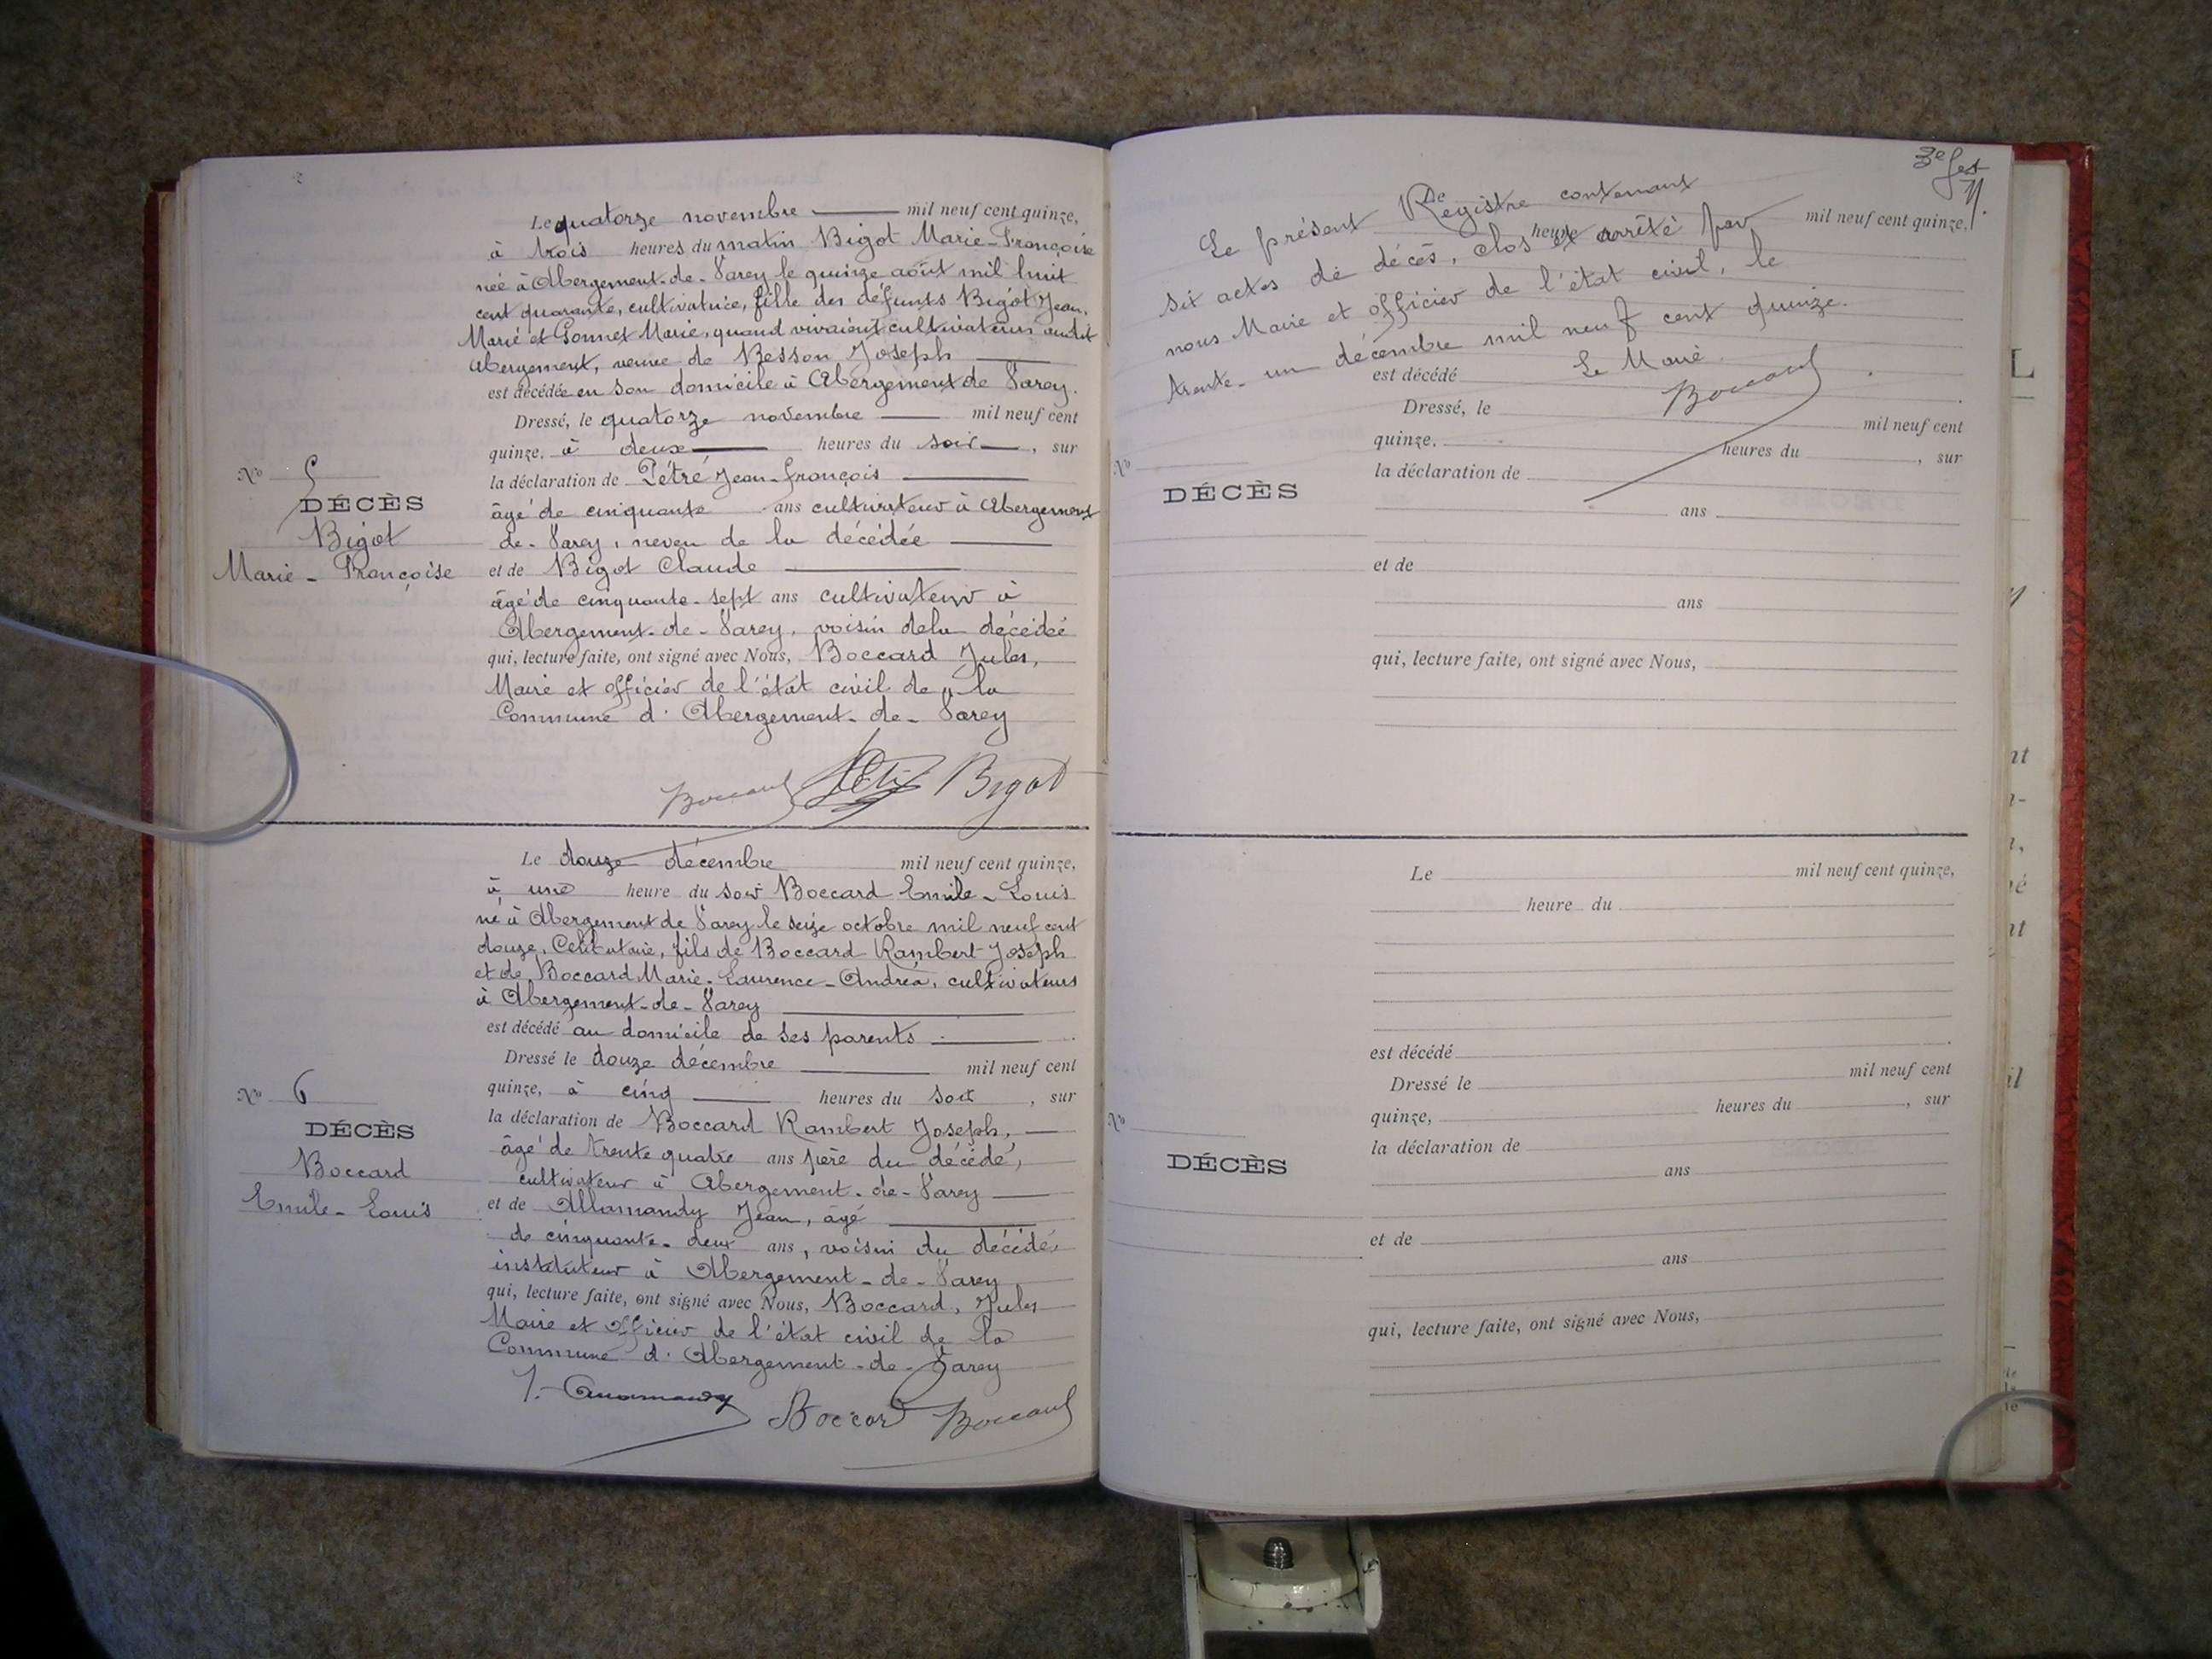 Le quatorze novembre mil neuf cent quinze,
à trois heures du matin Bigot Marie-Françoise
née à Abergement-de-Varey le quinze août mil huit
cent quarante, cultivatrice, fille des défunts Bigot Jean,
Marie et Gonnet Marie, quand vivaient cultivateurs audit
Abergement, veuve de Besson Joseph
est décédée en son domicile à Abergement de Varey.
Dressé, le quatorze novembre mil neuf cent
quinze, à deux heures du soir, sur
la déclaration de Pétré Jean-François
âgé de cinquante ans cultivateur à Abergement
de-Varey, neveu de la décédée
et de Bigot Claude
âgé de cinquante-sept ans cultivateur à
Abergement-de-Varey, voisin de la décédée
qui, lecture faite, ont signé avec Nous, Boccard Jules,
Maire et officier de l'état civil de la
Commune d'Abergement-de-Varey
Boccard Bigot
No 5
DÉCÈS
Bigot
Marie-Françoise
Le douze décembre mil neuf cent quinze,
à une heure du soir Boccard Emile-Louis
né à Abergement de Varey le seize octobre mil neuf cent
douze, Célibataire, fils de Boccard Rambert-Joseph
et de Boccard Marie-Laurence-Andréa, cultivateurs
à Abergement-de-Varey
est décédé au domicile de ses parents
Dressé le douze décembre mil neuf cent
quinze, à cinq heures du soir, sur
la déclaration de Boccard Rambert Joseph,
âgé de trente quatre ans père du décédé,
cultivateur à Abergement-de-Varey
et de Allamandy Jean, âgé
de cinquante-deux ans, voisin du décédé,
instituteur à Abergement-de-Varey
qui, lecture faite, ont signé avec Nous, Boccard, Jules
Maire et officier de l'état civil de la
Commune d'Abergement-de-Varey
Boccard Boccard
No 6
DÉCÈS
Boccard
Emile-Louis
3e
Le présent Registre contenant
six actes de décès, clos et arrêté par
nous Maire et officier de l'état civil, le
trente-un décembre mil neuf cent quinze.
Le Maire
Boccard
Le mil neuf cent quinze,
heure
est décédé
Dressé, le mil neuf cent
quinze, heures du , sur
la déclaration de
ans
et de
ans
qui, lecture faite, ont signé avec Nous,
No
DÉCÈS
Le mil neuf cent quinze,
heure du
est décédé
Dressé le mil neuf cent
quinze, heures du , sur
la déclaration de
ans
et de
ans
qui, lecture faite, ont signé avec Nous,
No
DÉCÈS